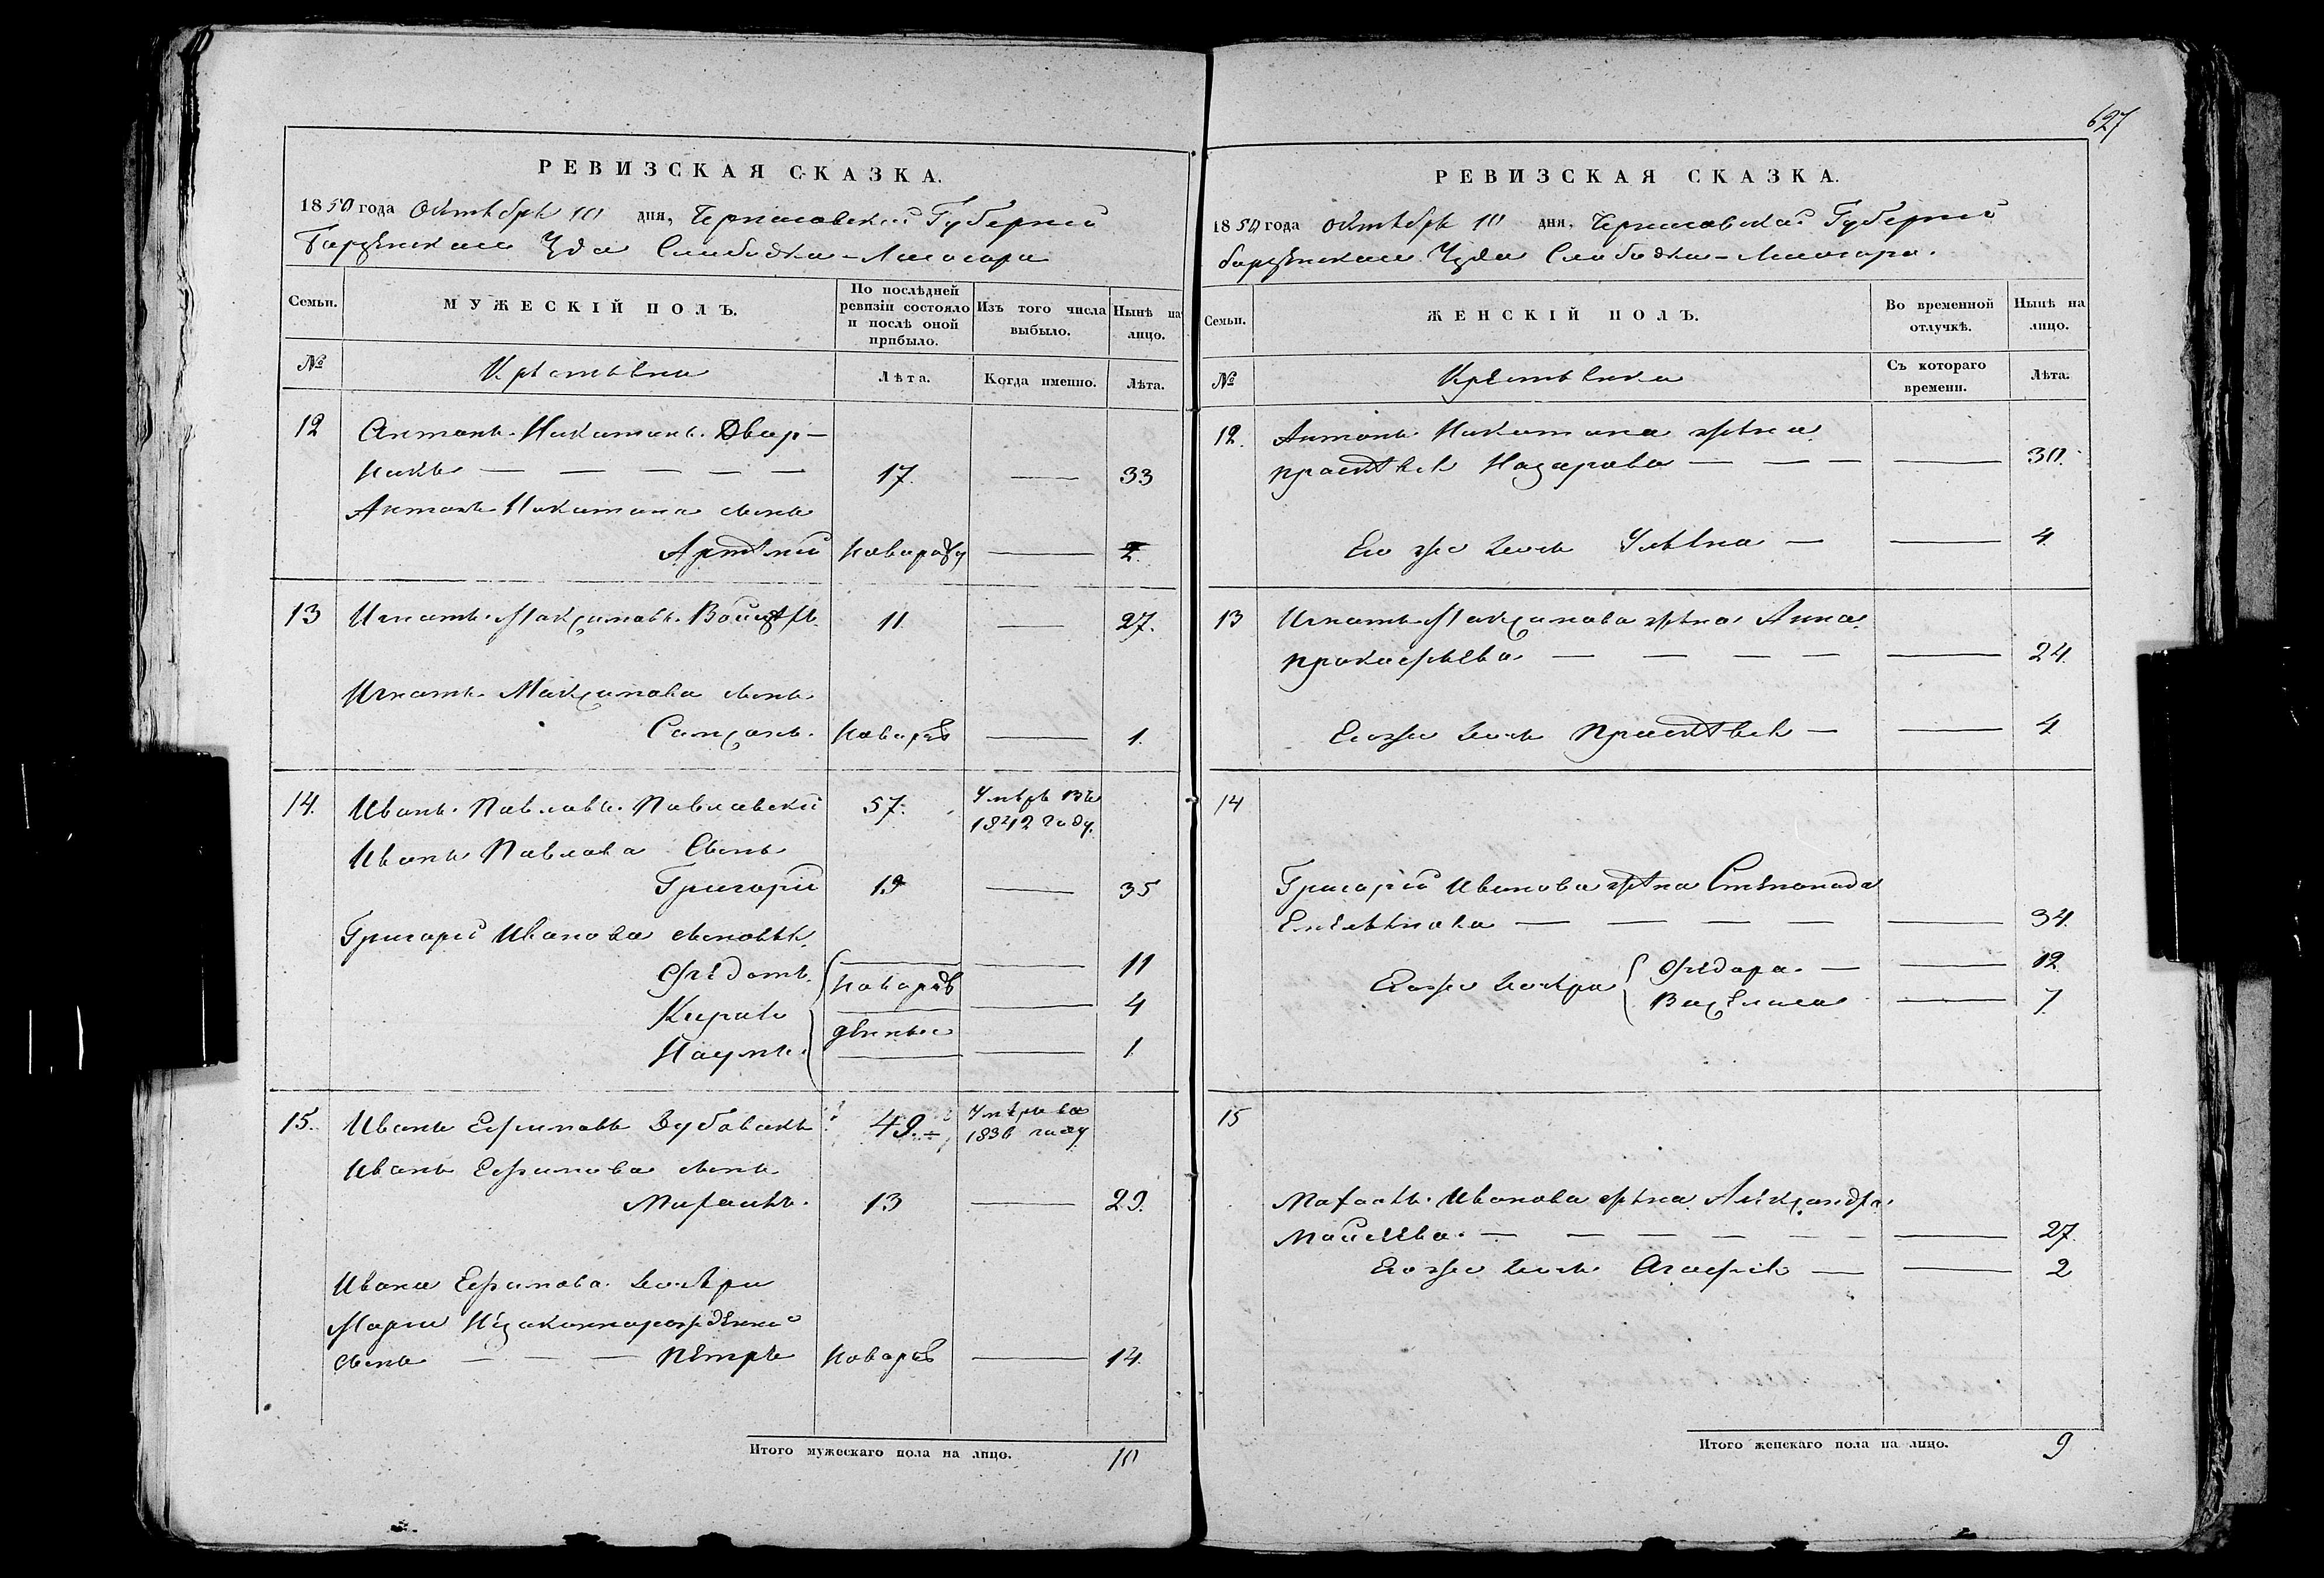 627
РЕВИЗСКАЯ СКАЗКА.
1850 года Октября 10 дня, Черниговской Губерніи
Борзенскаго Уезда Слободка
Семьи. МУЖЕСКІЙ ПОЛЪ. По послѣдней ревизіи состояло и послѣ оной прибыло. Изъ того числа выбыло. Нынѣ на лицо.
№ Крестьяне Лѣта. Когда именно. Лѣта.
12 Антонъ Никитинъ Двор-
никъ — — — — — 17. — 33
Антона Никитина сынъ
Артемій Новорож — 2.
13 Игнатъ Максимовъ 11 — 27.
Игната Максимова сынъ
Самсонъ. Новорж — 1.
14. Иванъ Павловъ Павловскій 57. Умеръ въ
1842 году.
Ивана Павлова Сынъ
Григорій 19 — 35
Григорія Иванова сыновья.
Федотъ — 11
Новорож
Кирилъ — 4
денные
Наумъ. — 1.
15. Иванъ Ефимовъ Зубовикъ 49. Умеръ въ
1836 году
Ивана Ефимова сынъ
Михаилъ. 13 — 29.
Ивана Ефимова дочери
Маріи Незаконнорожденный
сынъ — — — Петръ Новорж — 14.
Итого мужескаго пола на лицо. 10
РЕВИЗСКАЯ СКАЗКА.
1850 года октября 10 дня, Черниговской Губерніи
Борзенскаго Уезда Слободка
Семьи. ЖЕНСКІЙ ПОЛЪ. Во временной отлучкѣ. Нынѣ на лицо.
№ Крестьянки Съ котораго времени. Лѣта.
12. Антона Никитина жена
Прасковья Назарова — — — — 30.
Его же дочь Ульяна — — 4.
13 Игната Максимова жена Анна
Прокофьева — — — — — 24.
Его же дочь Прасковья — — 4
14
Григорія Иванова жена Степанида
Емельянова — — — — — 34.
Его же дочери Федора. — — 12.
Василиса — 7.
15
Михаила Иванова жена Александра
Моисеева. — — — — — — 27.
Его же дочь Агафья — — 2
Итого женскаго пола на лицо. 9